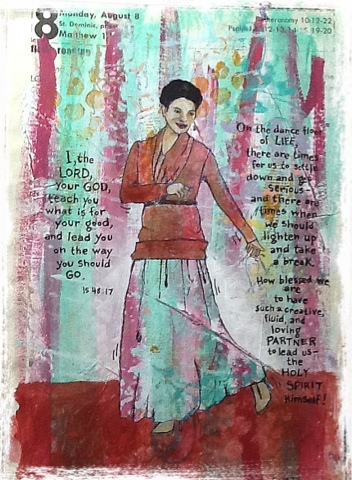 8 Monday, August 8
St. Dominic,
Matthew
Deuteronomy 10:12-22
19-20
I, the
LORD,
your GOD,
teach you
what is for
your good,
and lead you
on the way
you should
GO.
IS 48:17
On the dance floor
of LIFE,
there are times
for us to settle
down and get
serious-
and there are
times when
we should
lighten up
and take
a break.
How blessed we
are
to have
such a creative,
fluid, and
loving
PARTNER
to lead us-
the
HOLY
SPIRIT
Himself!